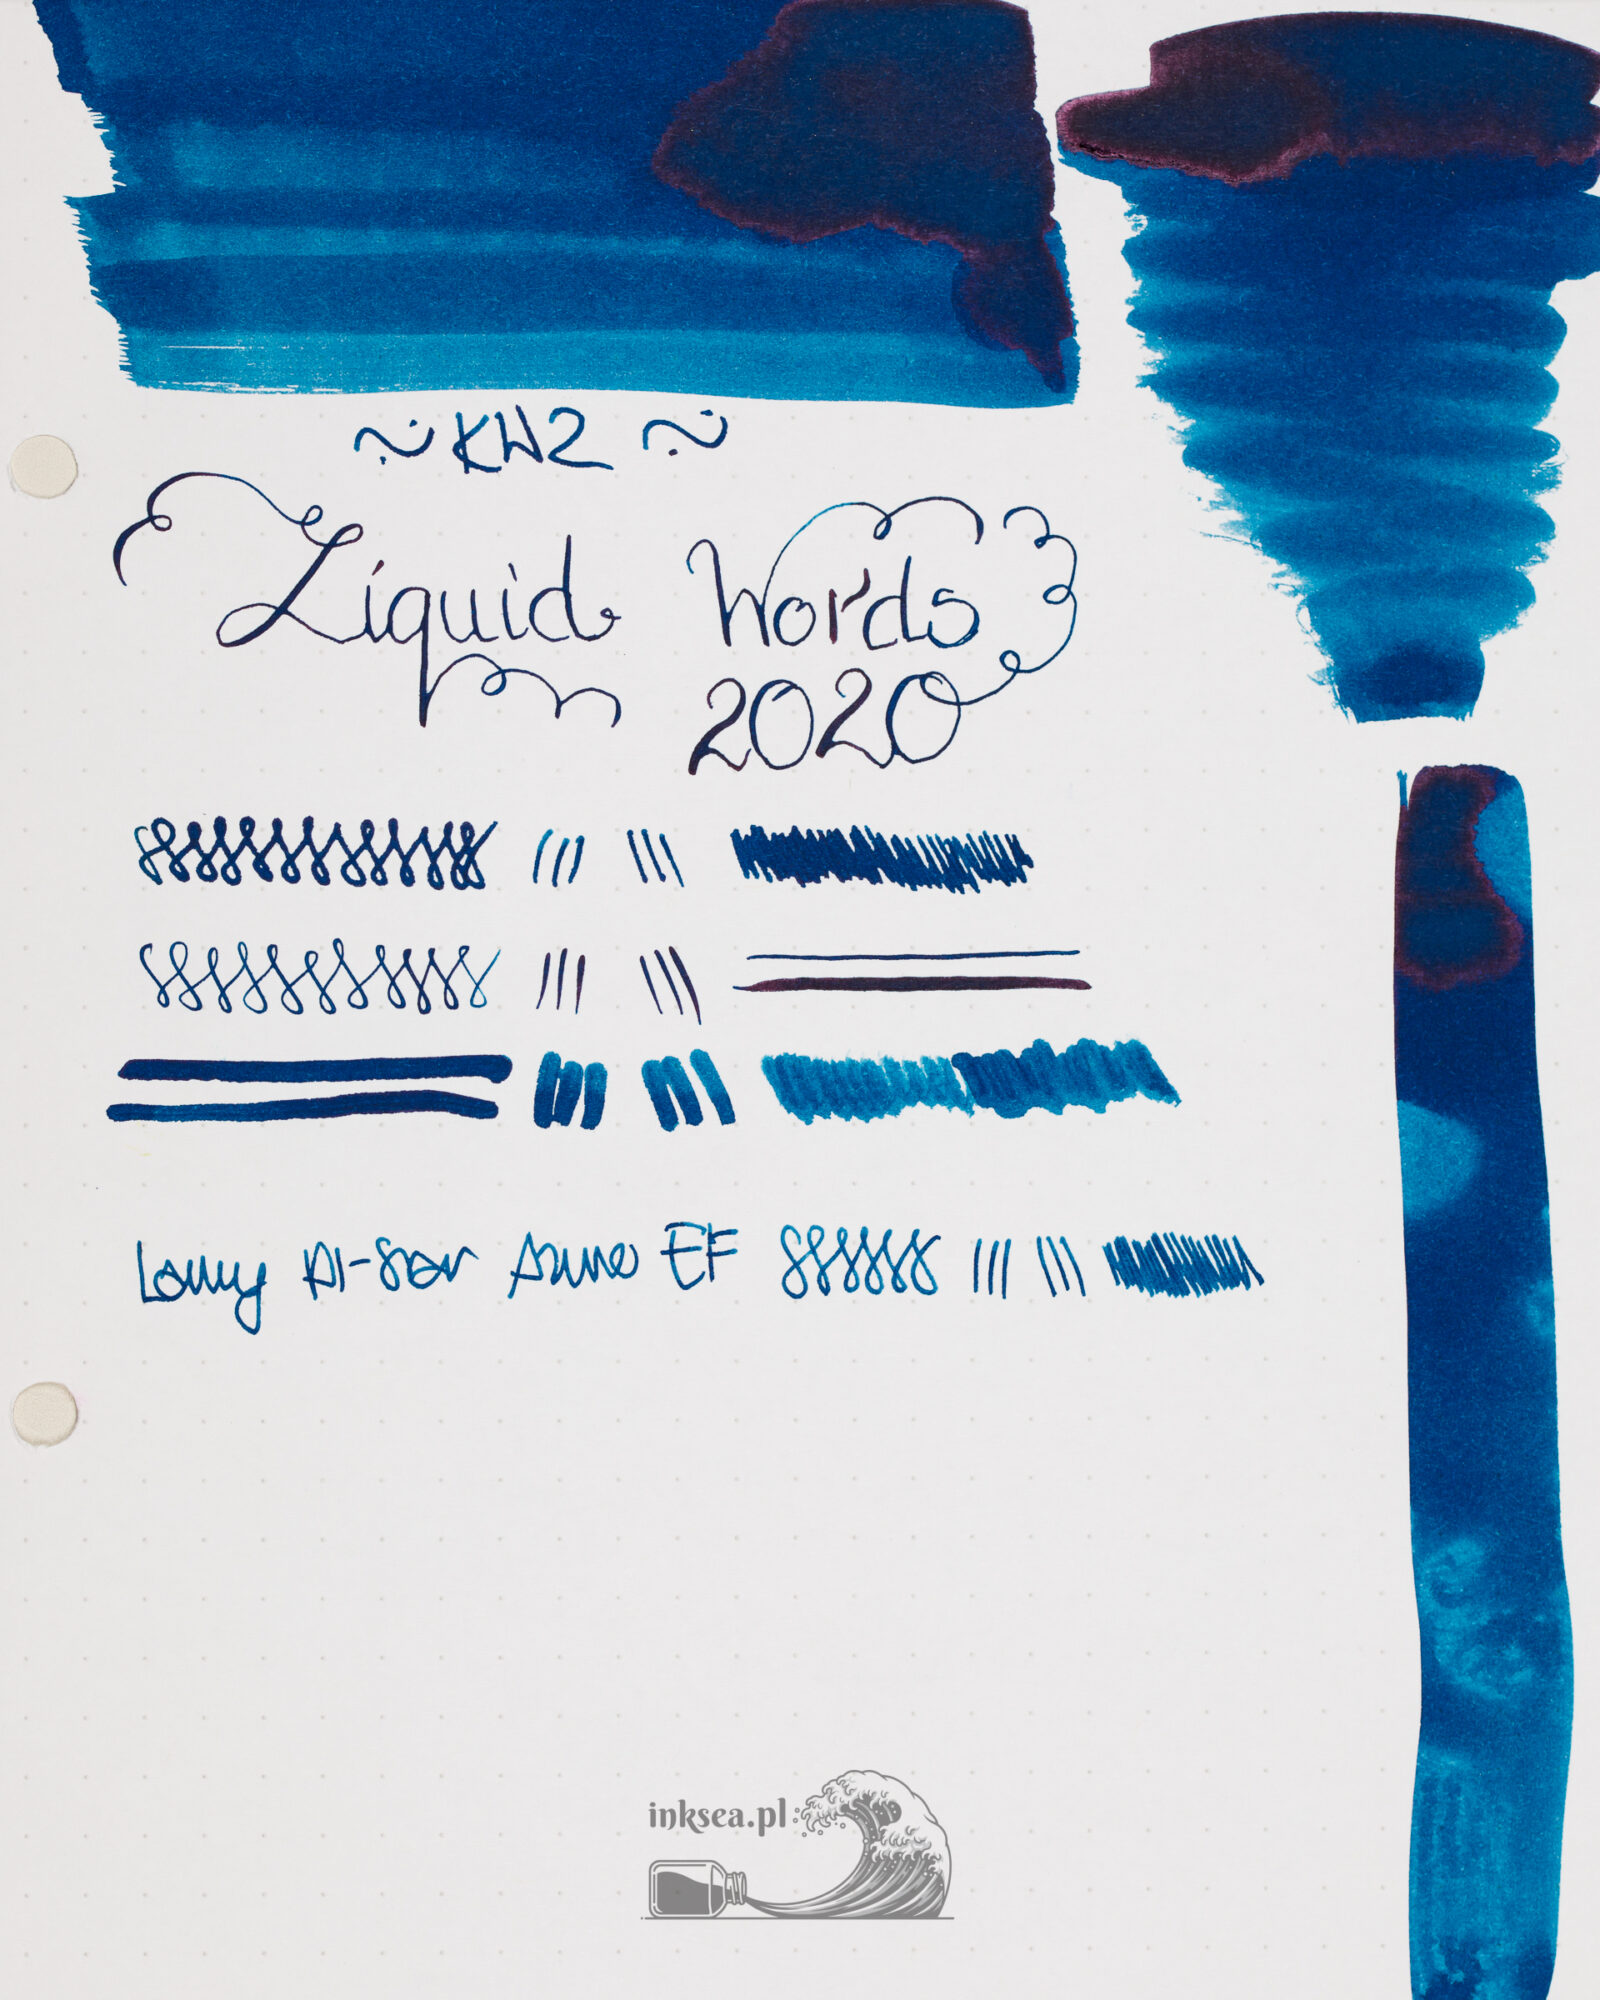 ~ KWZ ~
Liquid Words
2020
Lamy Al-Star Azure EF
inksea.pl